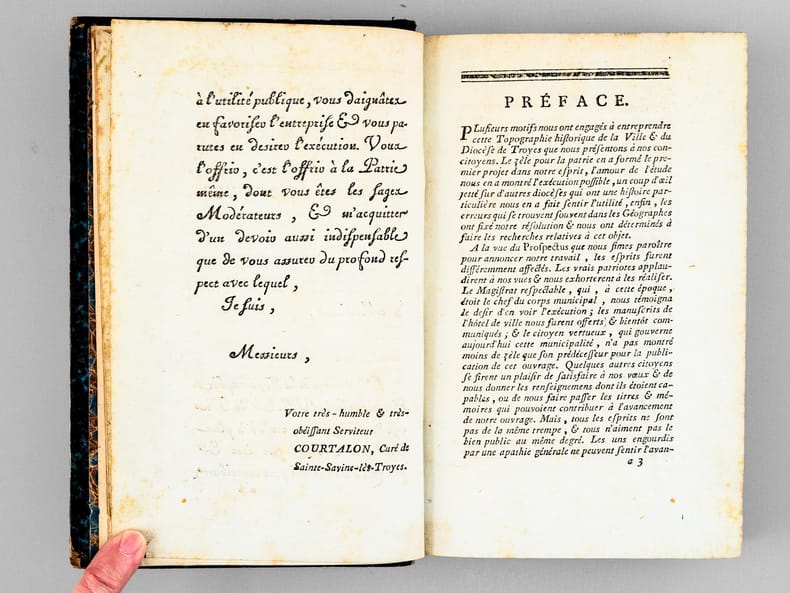 à l'utilité publique, vous daignâtes
en favoriser l'entreprise & vous pa-
rutes en desirer l'exécution. Vous
l'offrir, c'est l'offrir à la Patrie
même, dont vous êtes les sages
Modérateurs, & m'acquitter
d'un devoir aussi indispensable
que de vous assurer du profond res-
pect avec lequel,
Je suis,
Messieurs,
Votre très-humble & très-
obéissant Serviteur
COURTALON, Curé de
Sainte-Savine-lès-Troyes.
PRÉFACE.
PLusieurs motifs nous ont engagés à entreprendre
cette Topographie historique de la Ville & du
Diocèse de Troyes que nous présentons à nos con-
citoyens. Le zèle pour la patrie en a formé le pre-
mier projet dans notre esprit, l'amour de l'étude
nous en a montré l'exécution possible, un coup d'œil
jetté sur d'autres diocèses qui ont une histoire par-
ticulière nous en a fait sentir l'utilité, enfin, les
erreurs qui se trouvent souvent dans les Géographes
ont fixé notre résolution & nous ont déterminés à
faire les recherches relatives à cet objet.
A la vue du Prospectus que nous fimes paroître
pour annoncer notre travail, les esprits furent
différemment affectés. Les vrais patriotes applau-
dirent à nos vues & nous exhorterent à les réaliser.
Le Magistrat respectable, qui, à cette époque,
étoit le chef du corps municipal, nous témoigna
le desir d'en voir l'exécution; les manuscrits de
l'hôtel de ville nous furent offerts & bientôt com-
muniqués; & le citoyen vertueux, qui gouverne
aujourd'hui cette municipalité, n'a pas montré
moins de zèle que son prédécesseur pour la publi-
cation de cet ouvrage. Quelques autres citoyens
se firent un plaisir de satisfaire à nos vœux & de
nous donner les renseignemens dont ils étoient ca-
pables, ou de nous faire passer les titres & mé-
moires qui pouvoient contribuer à l'avancement
de notre ouvrage. Mais, tous les esprits ne sont
pas de la même trempe, & tous n'aiment pas le
bien public au même degré. Les uns engourdis
par une apathie générale ne peuvent sentir l'avan-
a 3